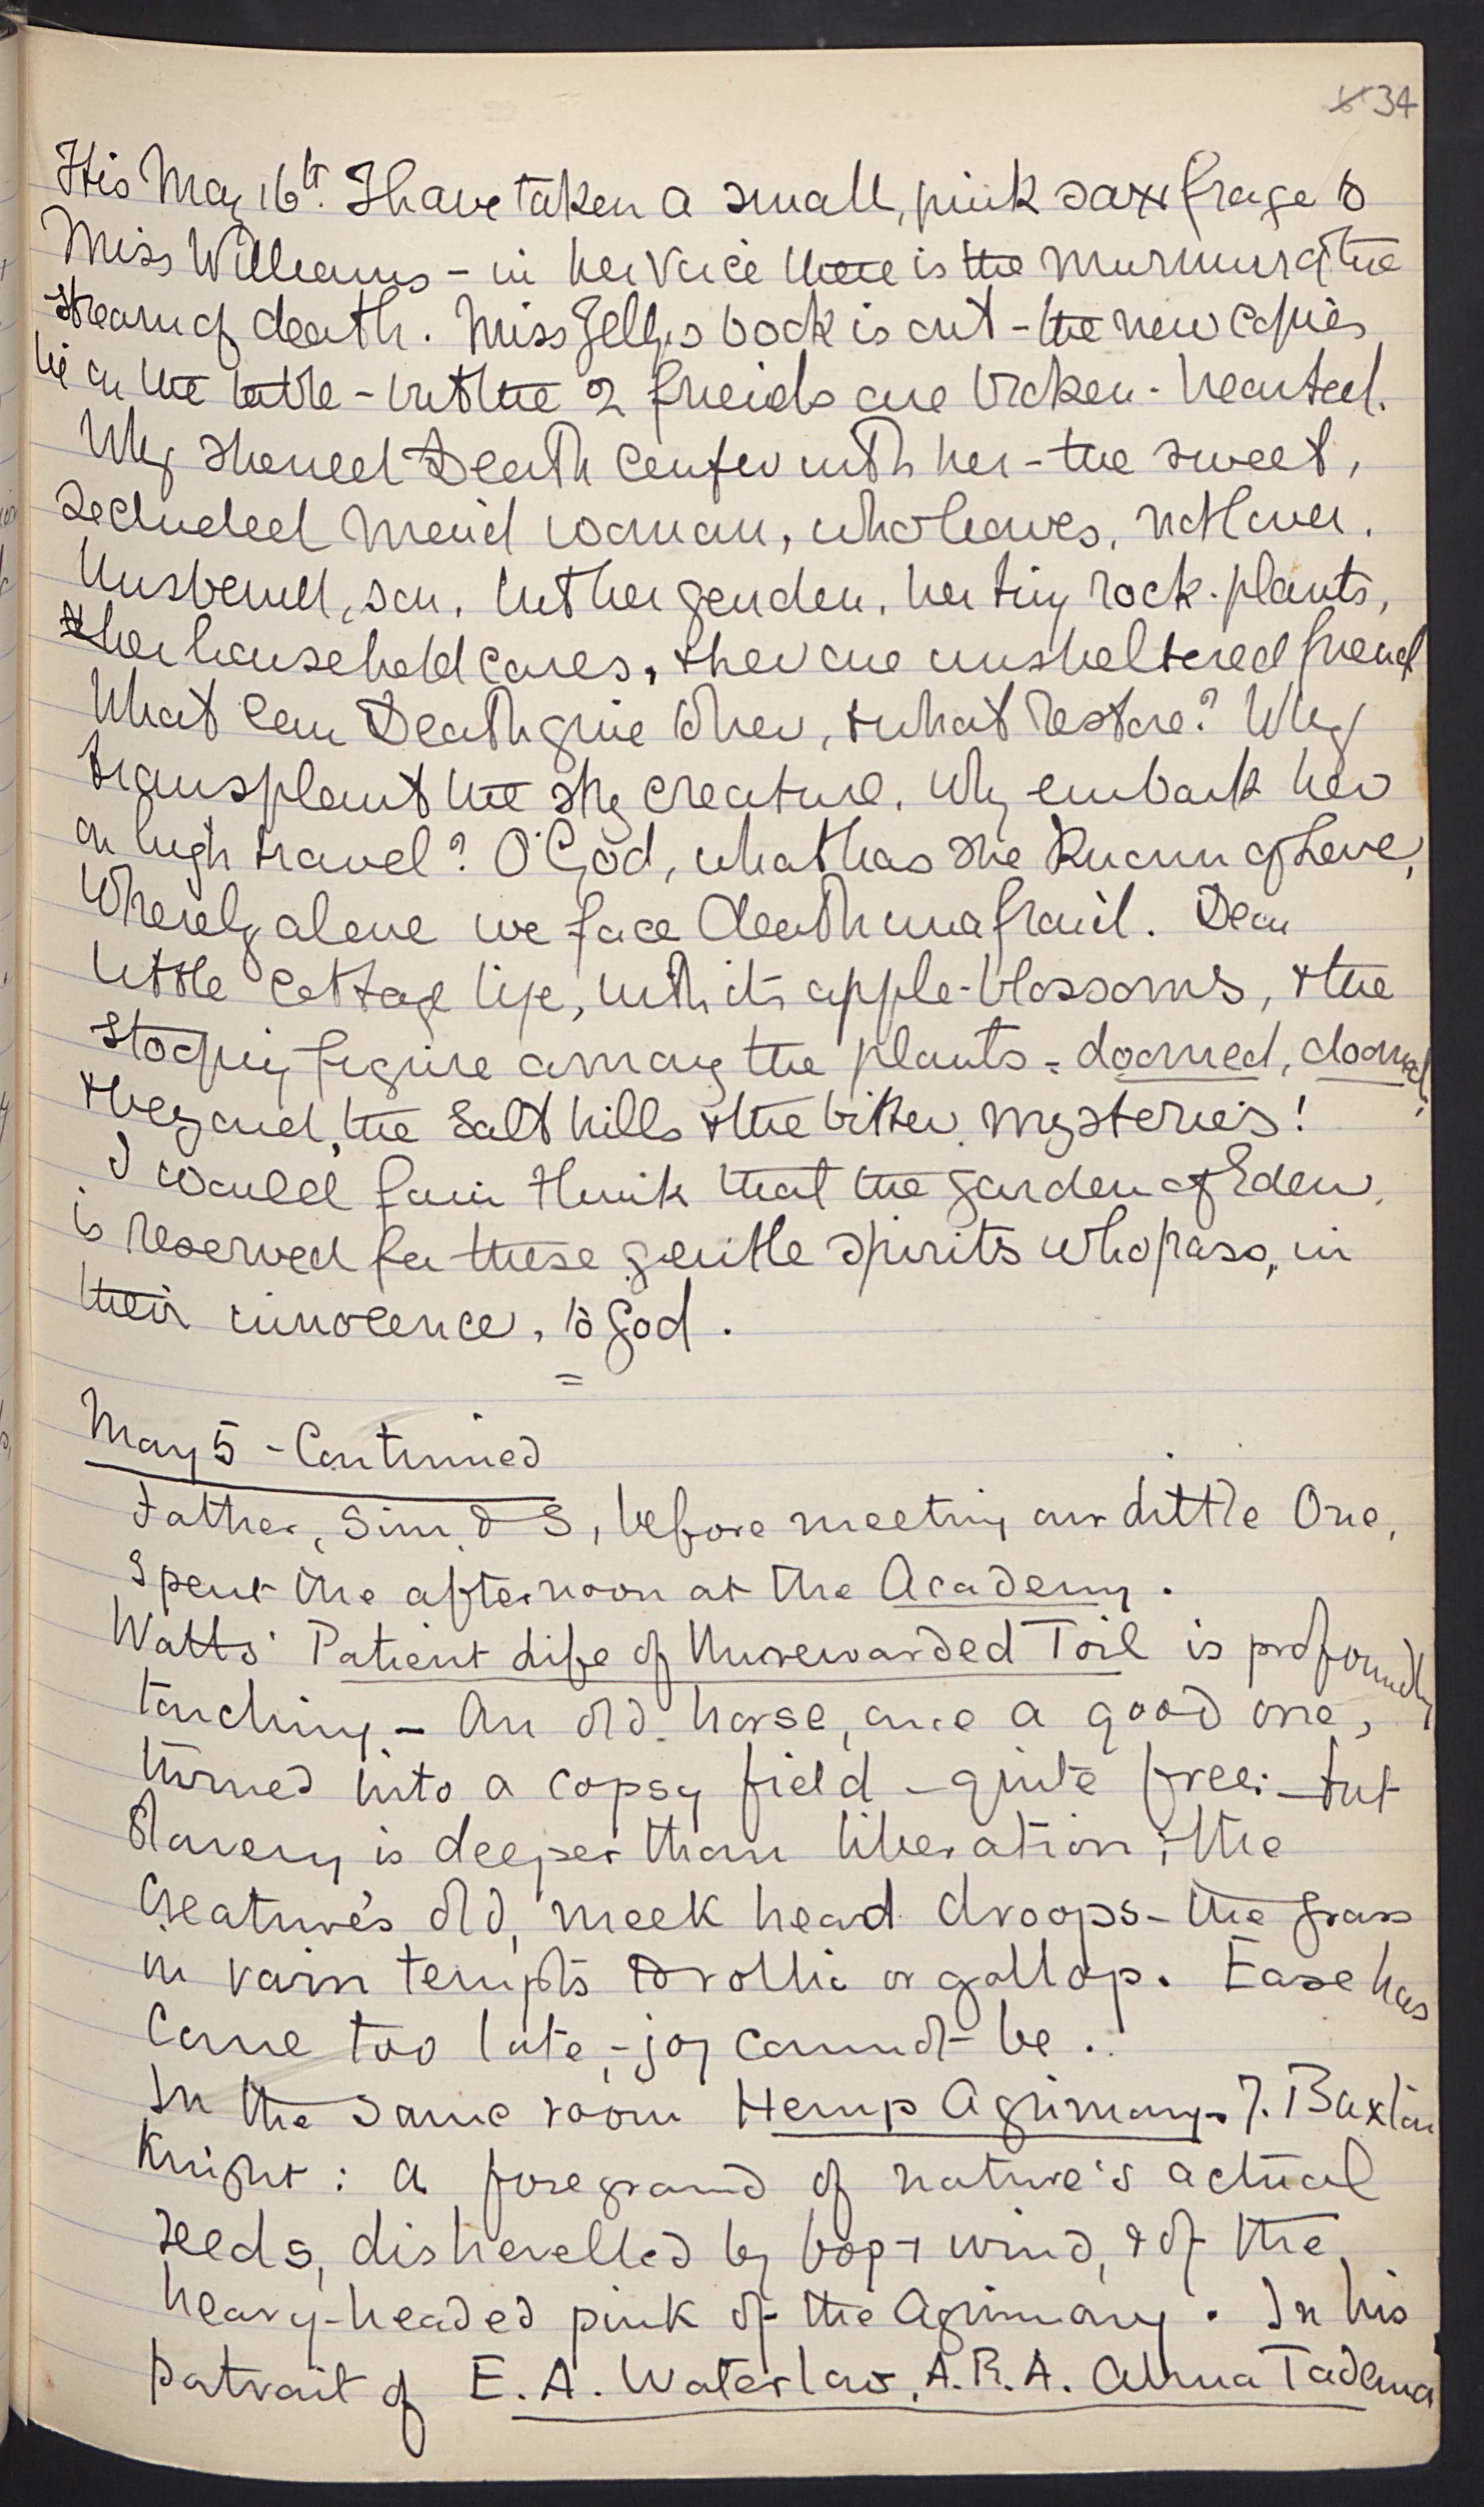 34
Itis May 16th. I have taken a small, pink saxifrage to
Miss Williams - in her voice there is the murmur of the
stream of death. Miss Jelly's book is out - the new copies
lie on the table - but the 2 friends are broken-hearted.
Why should Death confer with her - the sweet,
secluded maid woman, who leaves, not lover,
husband, son, but her garden, her tiny rock-plants,
her household cares, & her one unsheltered friend
What can Death give to her, & what restore? Why
transplant the shy creature, why embark her
on high travel? O God, what has she known of Love,
whereby alone we face death unafraid. Dear
little cottage life, with its apple-blossoms, & the
stooping figure among the plants - doomed, doomed,
& beyond, the salt hills & the bitter mysteries!
I would fain think that the garden of Eden
is reserved for these gentle spirits who pass, in
their innocence, to God.
=
May 5 - Continued
Father, Sim, & S, before meeting our Little One,
spent the afternoon at the Academy.
Watts' Patient Life of Unrewarded Toil is profoundly
touching - An old horse, once a good one,
turned into a copsy field - quite free: - but
Slavery is deeper than liberation; the
creature's old, meek head droops - the grass
in vain tempts to rollic or gallop. Ease has
come too late, - joy cannot be.
In the same room Hemp Agrimony - J. Buxton
Knight: a foreground of nature's actual
seeds, dishevelled by fog & wind, & of the
heavy-headed pink of the Agrimony. In his
portrait of E. A. Waterlow, A.R.A. Alma Tadema